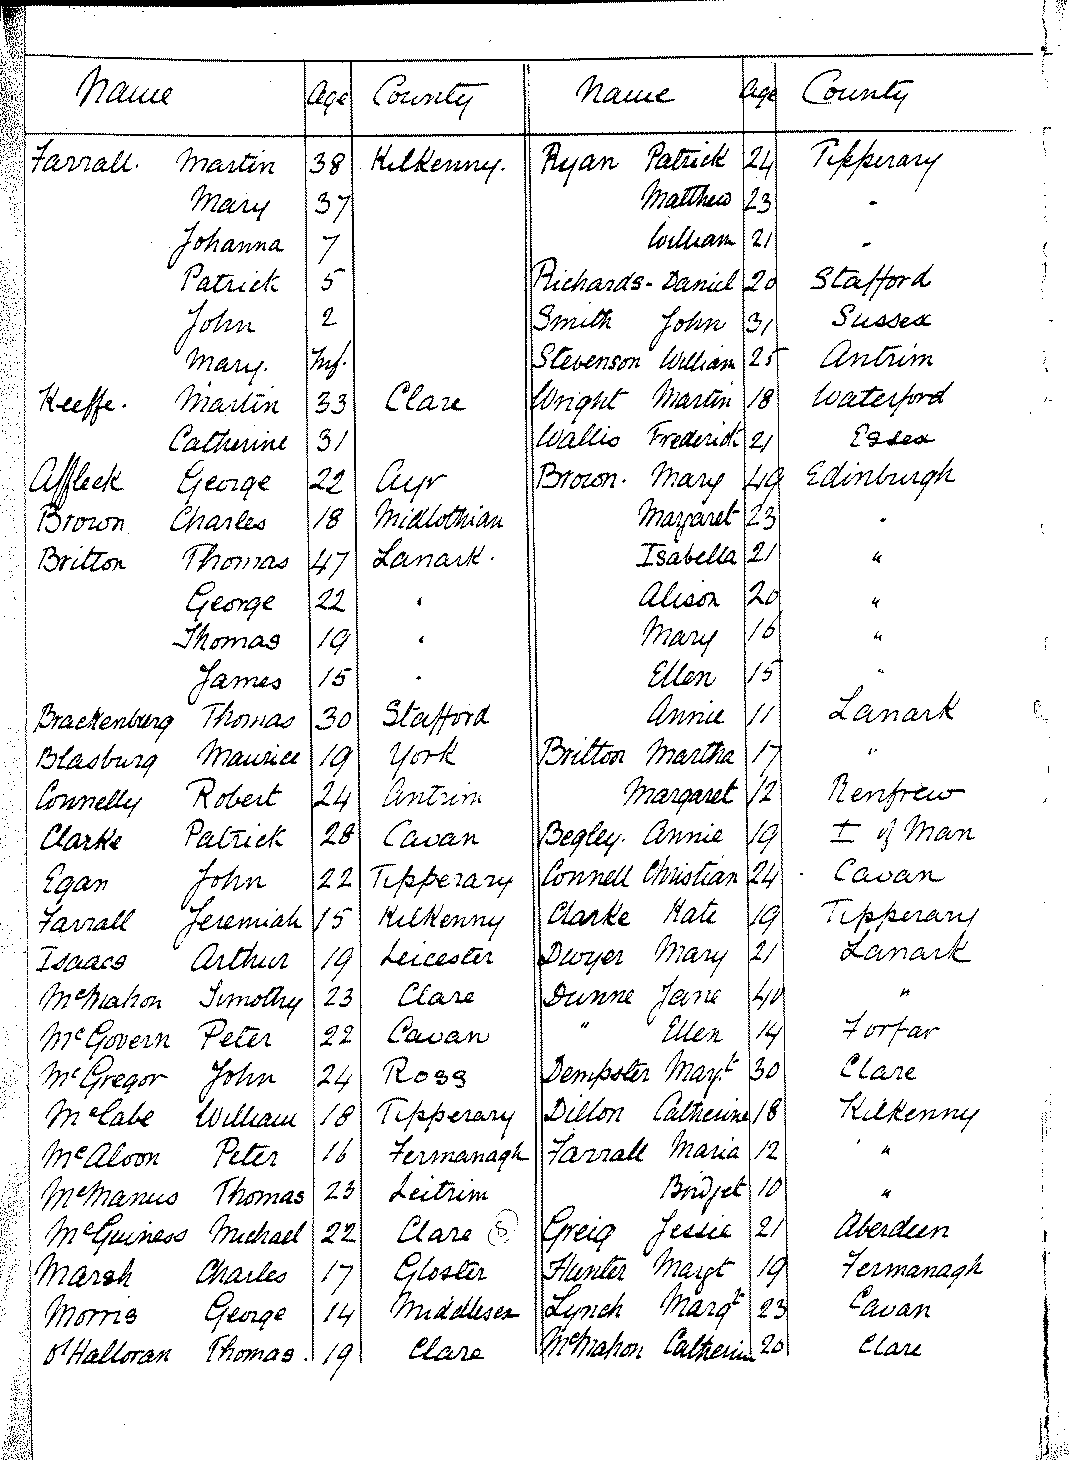 Name Age County
Farrall. Martin 38 Kilkenny.
Mary 37
Johanna 7
Patrick 5
John 2
Mary. Inf.
Keeffe. Martin 33 Clare
Catherine 31
Affleck George 22 Ayr
Brown Charles 18 Midlothian
Britton Thomas 47 Lanark.
George 22 "
Thomas 19 "
James 15 "
Brackenburg Thomas 30 Stafford
Blasburg Maurice 19 York
Connelly Robert 24 Antrim
Clarke Patrick 28 Cavan
Egan John 22 Tipperary
Farrall Jeremiah 15 Kilkenny
Isaacs Arthur 19 Leicester
McMahon Timothy 23 Clare
McGovern Peter 22 Cavan
McGregor John 24 Ross
McCabe William 18 Tipperary
McAloon Peter 16 Fermanagh
McManus Thomas 23 Leitrim
McGuiness Michael 22 Clare
Marsh Charles 17 Gloster
Morris George 14 Middlesex
O'Halloran Thomas. 19 Clare
Name Age County
Ryan Patrick 24 Tipperary
Matthew 23 "
William 21 "
Richards - Daniel 20 Stafford
Smith John 31 Sussex
Stevenson William 25 Antrim
Wright Martin 18 Waterford
Wallis Frederick 21 Essex
Brown. Mary 49 Edinburgh
Margaret 23 "
Isabella 21 "
Alison 20 "
Mary 16 "
Ellen 15 "
Annie 11 Lanark
Britton Martha 17 "
Margaret 12 Renfrew
Begley. Annie 19 I of Man
Connell Christian 24 Cavan
Clarke Kate 19 Tipperary
Dwyer Mary 21 Lanark
Dunne Jane 40 "
" Ellen 14 Forfar
Dempster Margt 30 Clare
Dillon Catherine 18 Kilkenny
Farrall Maria 12 "
Bridget 10 "
Greig Jessie 21 Aberdeen
Hunter Margt 19 Fermanagh
Lynch Margt 23 Cavan
McMahon Catherine 20 Clare